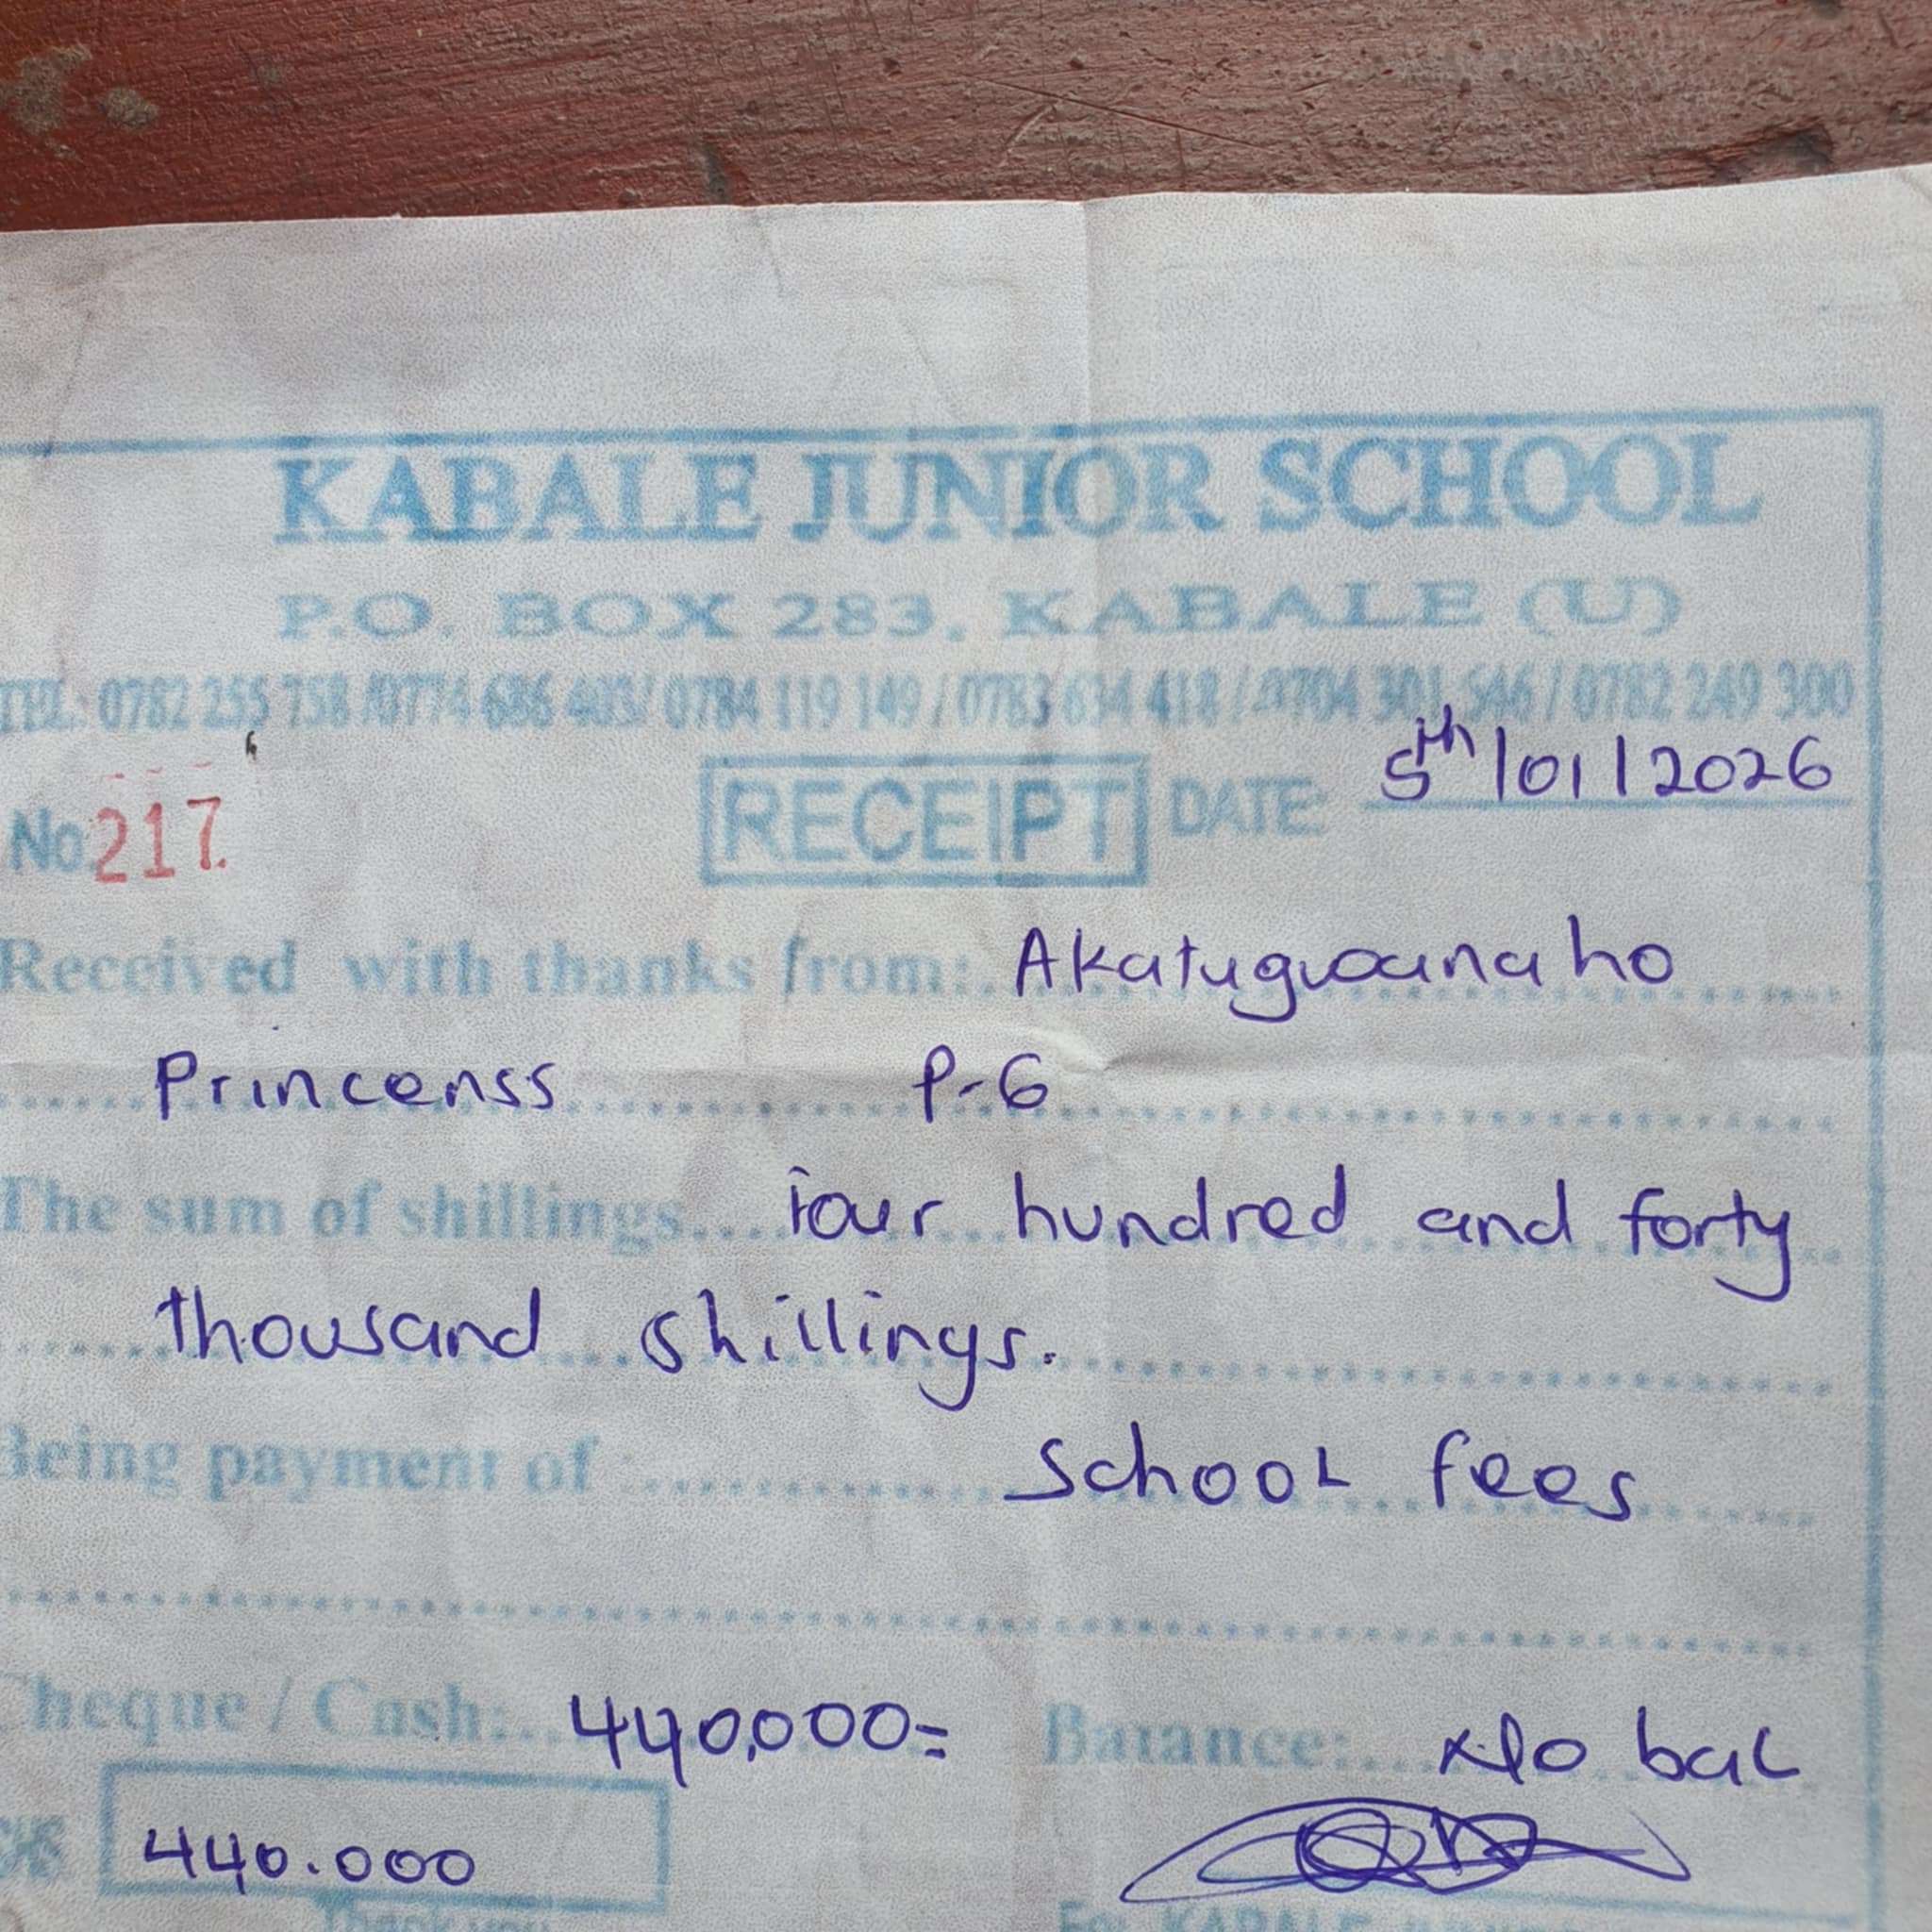 KABALE JUNIOR SCHOOL
P.O. BOX 283, KABALE (U)
TEL: 0782 255 758 /0774 686 403/ 0784 119 149 / 0783 634 418 / 0704 301 546 / 0782 249 300
No. 217. RECEIPT DATE: 5th/01/2026
Received with thanks from: Akatugwanaho
Princenss P-6
The sum of shillings four hundred and forty
thousand shillings.
Being payment of school fees
Cheque / Cash: 440,000= Balance: No bal
SHS 440.000
Thank you For KABALE